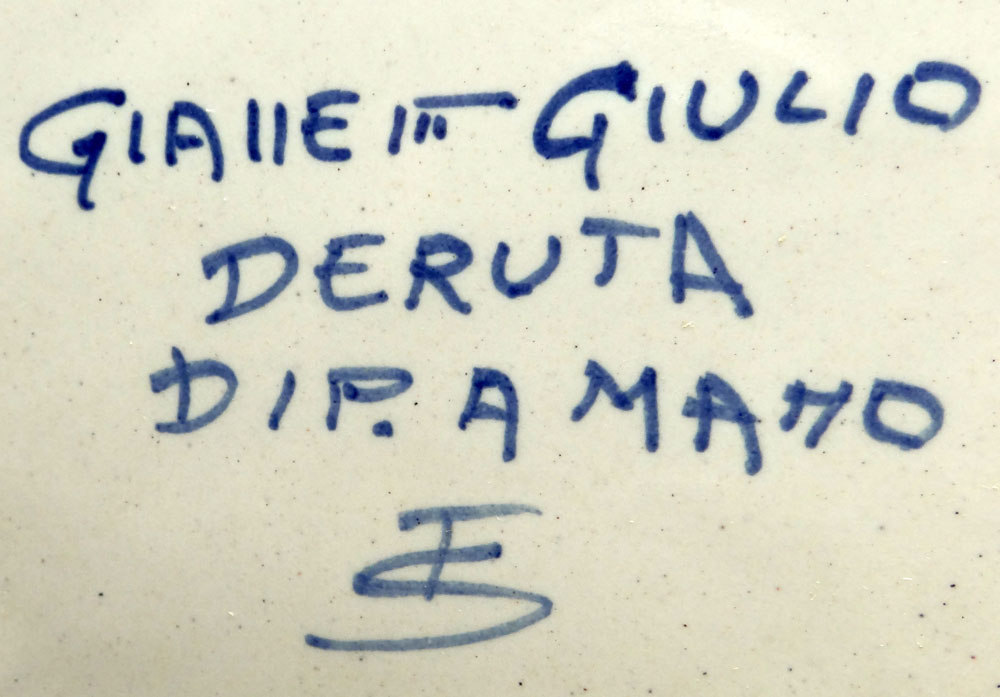 GIALLETTI GIULIO
DERUTA
DIP. A MANO